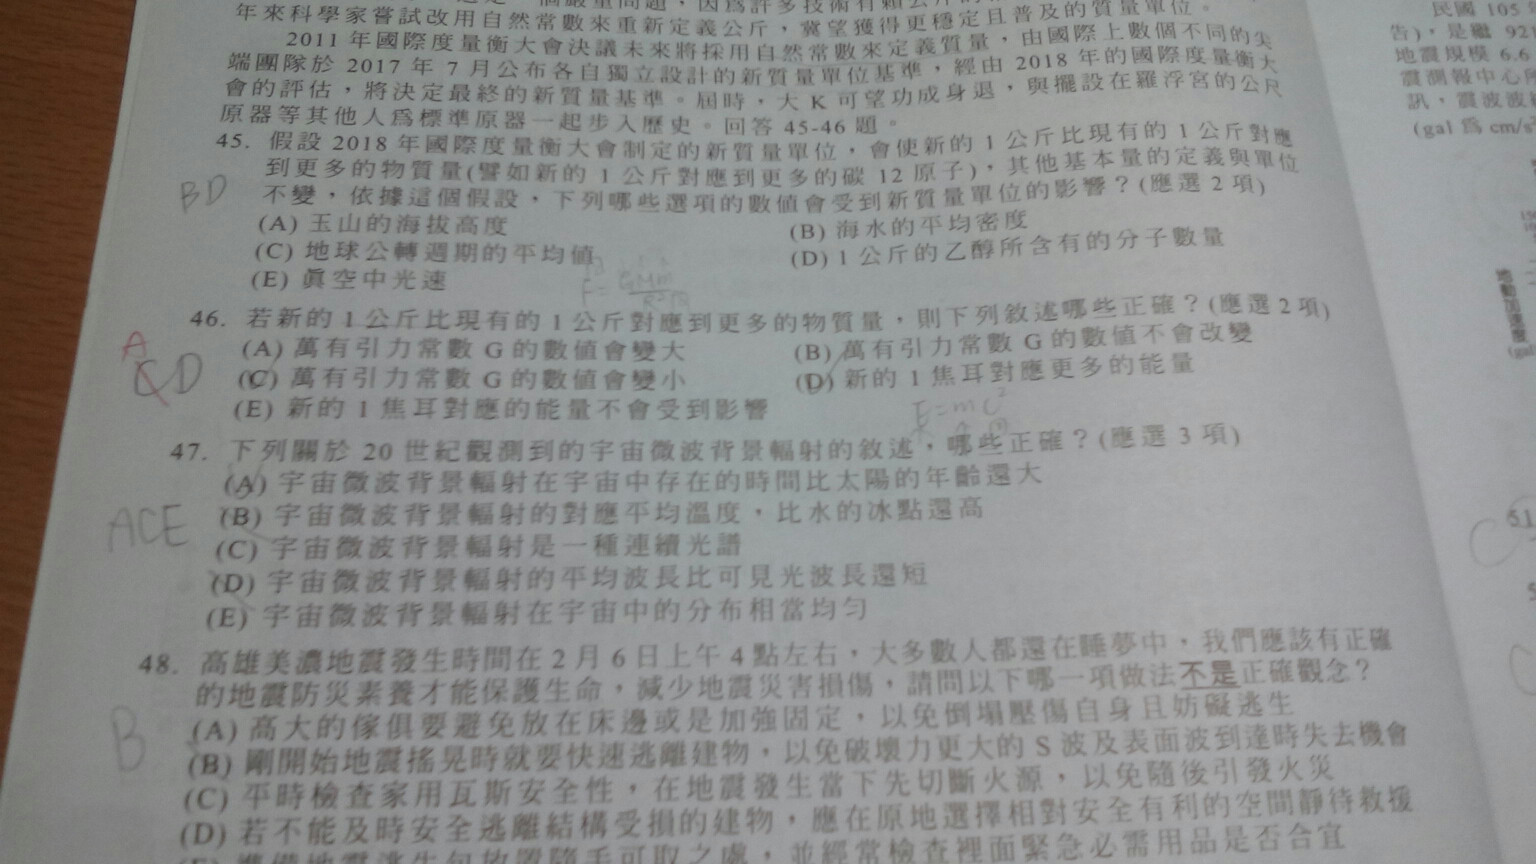 嚴重問題，因為許多技術有賴公斤的
年來科學家嘗試改用自然常數來重新定義公斤，冀望獲得更穩定且普及的質量單位。
2011 年國際度量衡大會決議未來將採用自然常數來定義質量，由國際上數個不同的尖
端團隊於 2017 年 7 月公布各自獨立設計的新質量單位基準，經由 2018 年的國際度量衡大
會的評估，將決定最終的新質量基準。屆時，大 K 可望功成身退，與擺設在羅浮宮的公尺
原器等其他人為標準原器一起步入歷史。回答 45-46 題。
45. 假設 2018 年國際度量衡大會制定的新質量單位，會使新的 1 公斤比現有的 1 公斤對應
到更多的物質量(譬如新的 1 公斤對應到更多的碳 12 原子)，其他基本量的定義與單位
BD
不變，依據這個假設，下列哪些選項的數值會受到新質量單位的影響？(應選 2 項)
(A) 玉山的海拔高度
(B) 海水的平均密度
(C) 地球公轉週期的平均值
(D) 1 公斤的乙醇所含有的分子數量
(E) 真空中光速
46. 若新的 1 公斤比現有的 1 公斤對應到更多的物質量，則下列敘述哪些正確？(應選 2 項)
A
CD
(A) 萬有引力常數 G 的數值會變大
(B) 萬有引力常數 G 的數值不會改變
(C) 萬有引力常數 G 的數值會變小
(D) 新的 1 焦耳對應更多的能量
(E) 新的 1 焦耳對應的能量不會受到影響
E=mc²
47. 下列關於 20 世紀觀測到的宇宙微波背景輻射的敘述，哪些正確？(應選 3 項)
(A) 宇宙微波背景輻射在宇宙中存在的時間比太陽的年齡還大
ACE
(B) 宇宙微波背景輻射的對應平均溫度，比水的冰點還高
(C) 宇宙微波背景輻射是一種連續光譜
(D) 宇宙微波背景輻射的平均波長比可見光波長還短
(E) 宇宙微波背景輻射在宇宙中的分布相當均勻
48. 高雄美濃地震發生時間在 2 月 6 日上午 4 點左右，大多數人都還在睡夢中，我們應該有正確
的地震防災素養才能保護生命，減少地震災害損傷，請問以下哪一項做法不是正確觀念？
B
(A) 高大的傢俱要避免放在床邊或是加強固定，以免倒塌壓傷自身且妨礙逃生
(B) 剛開始地震搖晃時就要快速逃離建物，以免破壞力更大的 S 波及表面波到達時失去機會
(C) 平時檢查家用瓦斯安全性，在地震發生當下先切斷火源，以免隨後引發火災
(D) 若不能及時安全逃離結構受損的建物，應在原地選擇相對安全有利的空間靜待救援
(E) 準備地震逃生包放置隨手可取之處，並經常檢查裡面緊急必需用品是否合宜
民國 105
告)，是繼 921
地震規模 6.6
震測報中心
訊，震波
(gal 為 cm/s
地動加速度
(gal
51
C